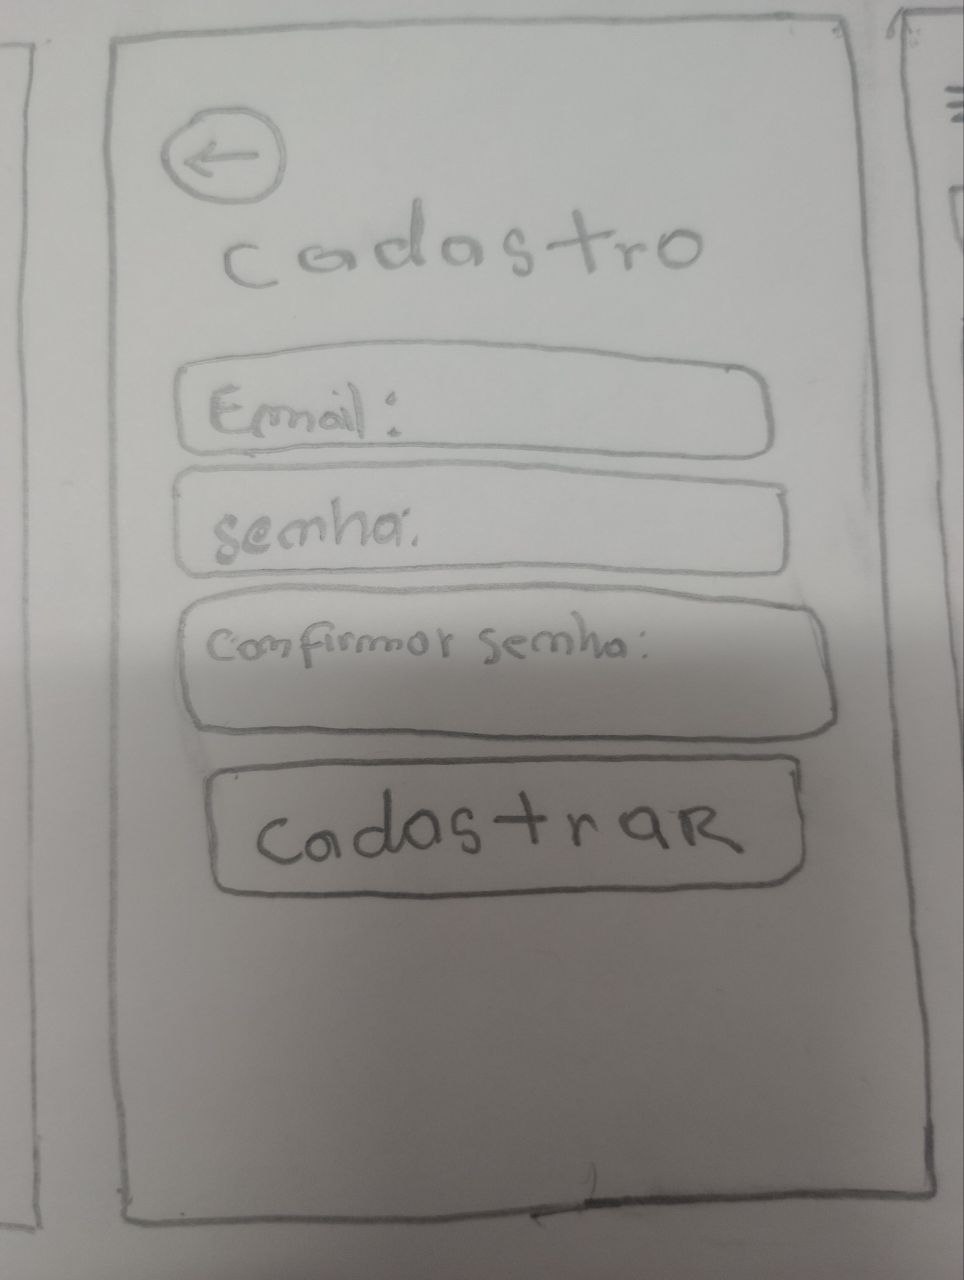 cadastro
Email:
senha:
confirmar senha:
cadastraR